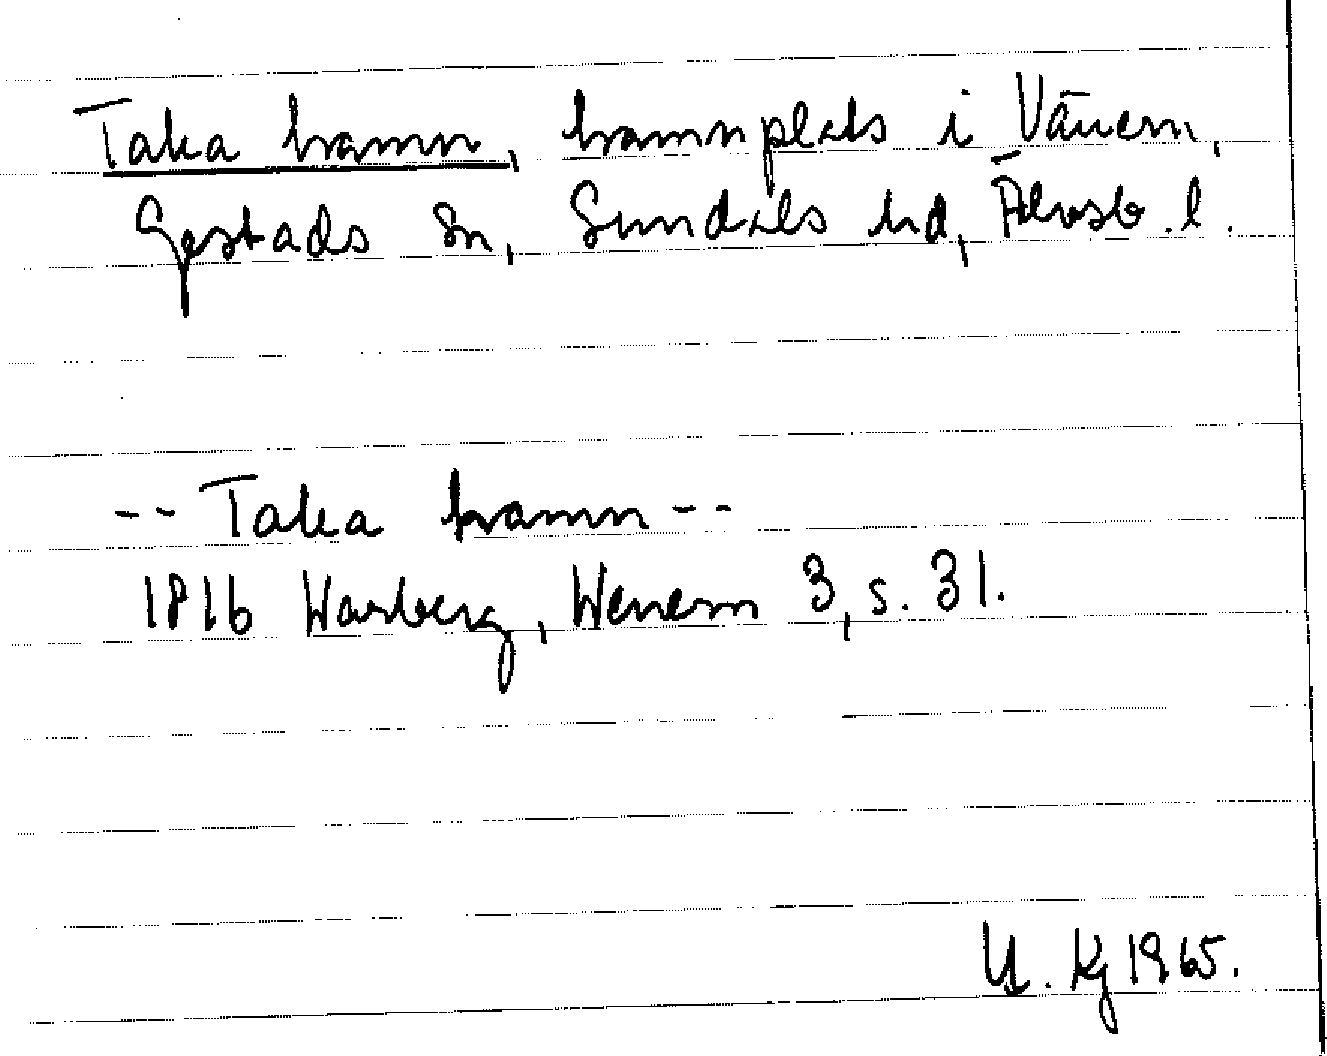 Taka hamn, hamnplats i Vänern,
Gestads sn, Sundals hd, Älvsb. l.
-- Taka hamn --
1816 Warberg, Wenern 3, s. 31.
U. Kj 1965.